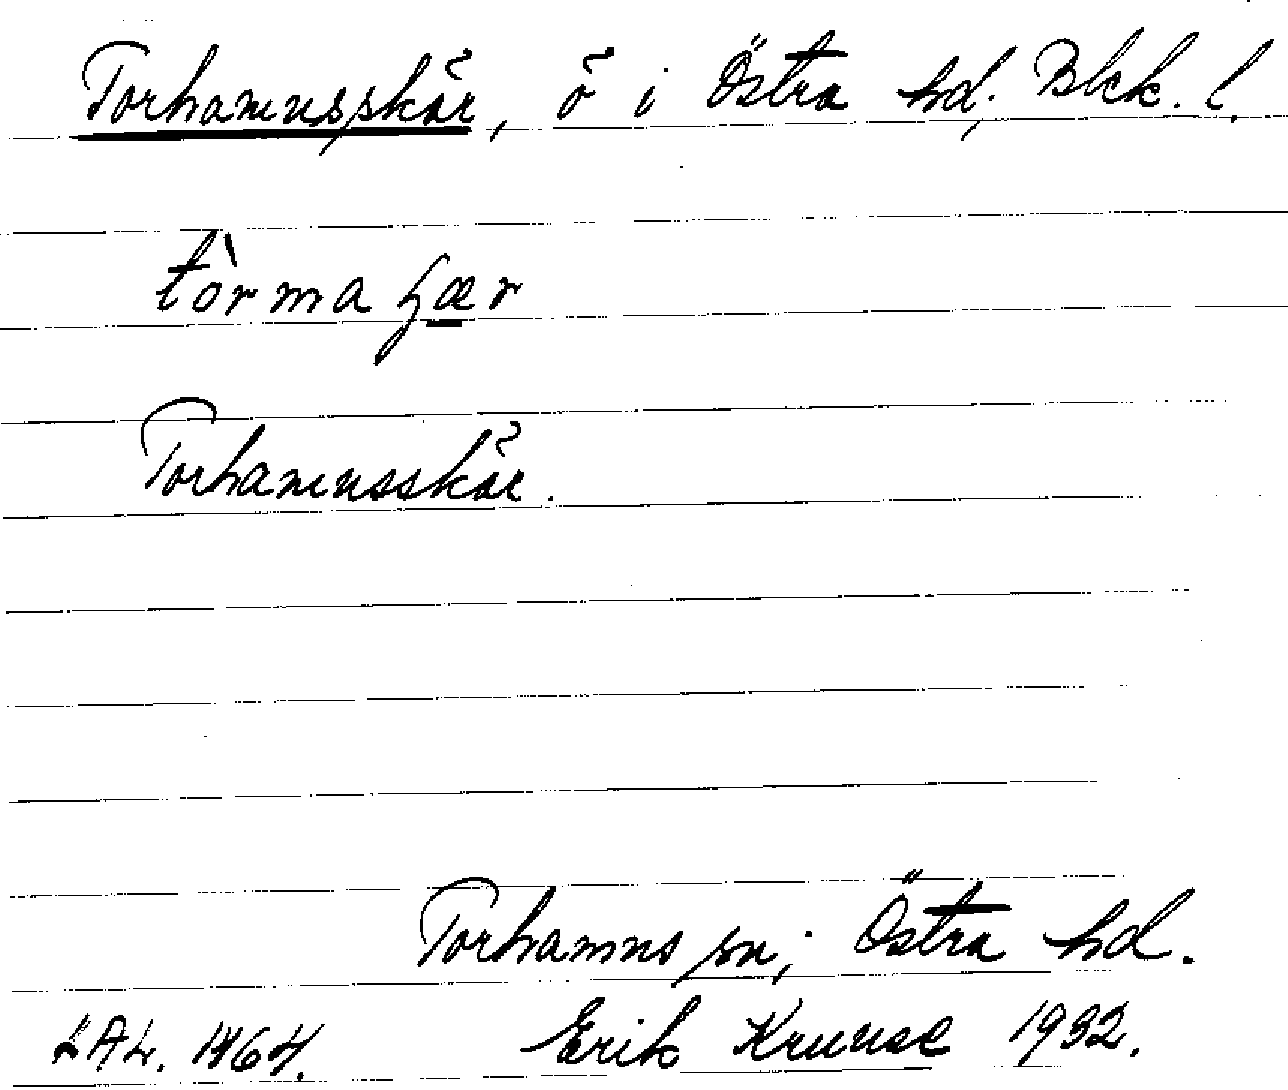 Torhamnsskär, ö i Östra hd, Blek. l.
tòrmaʃær
Torhamnsskär.
Torhamns sn; Östra hd.
Erik Kruuse 1932.